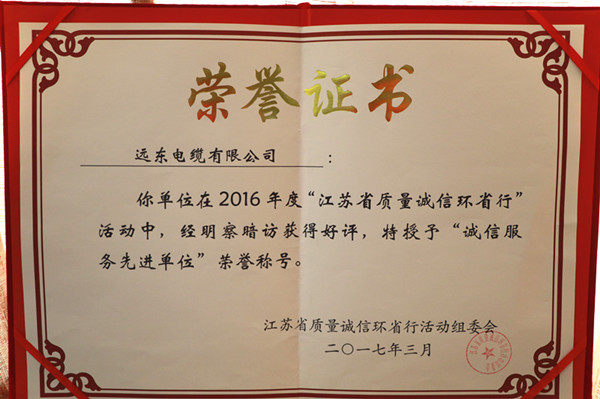 荣誉证书
远东电缆有限公司：
你单位在2016年度“江苏省质量诚信环省行”
活动中，经明察暗访获得好评，特授予“诚信服
务先进单位”荣誉称号。
江苏省质量诚信环省行活动组委会
二〇一七年三月